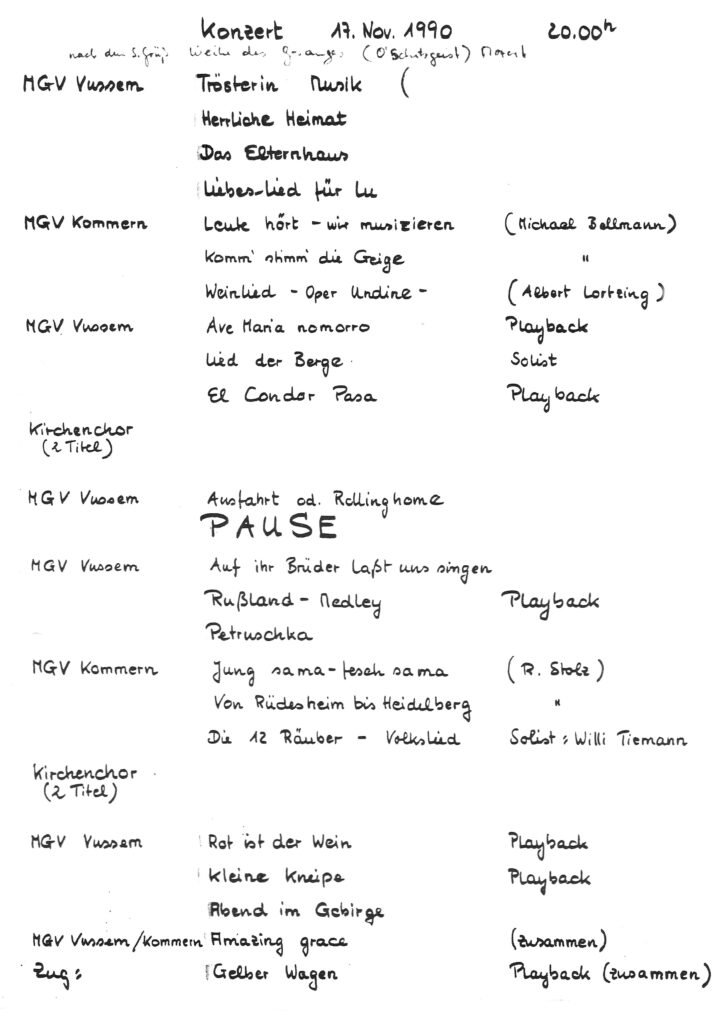 Konzert 17. Nov. 1990 20.00h
nach dem Weihe des Gesanges (O Schutzgeist) Mozart
MGV Vussem Trösterin Musik (
Herrliche Heimat
Das Elternhaus
Liebes-Lied für Lu
MGV Kommern Leute hört - wir musizieren (Michael Bellmann)
Komm' stimm' die Geige "
Weinlied - Oper Undine - (Albert Lortzing)
MGV Vussem Ave Maria nomorro Playback
Lied der Berge Solist
El Condor Pasa Playback
Kirchenchor
(2 Titel)
MGV Vussem Ausfahrt od. Rollinghome
PAUSE
MGV Vussem Auf ihr Brüder laßt uns singen
Rußland - Medley Playback
Petruschka
MGV Kommern Jung sama - fesch sama (R. Stolz)
Von Rüdesheim bis Heidelberg "
Die 12 Räuber - Volkslied Solist: Willi Tiemann
Kirchenchor
(2 Titel)
MGV Vussem Rot ist der Wein Playback
Kleine Kneipe Playback
Abend im Gebirge
MGV Vussem/Kommern Amazing grace (zusammen)
Zug: Gelber Wagen Playback (zusammen)